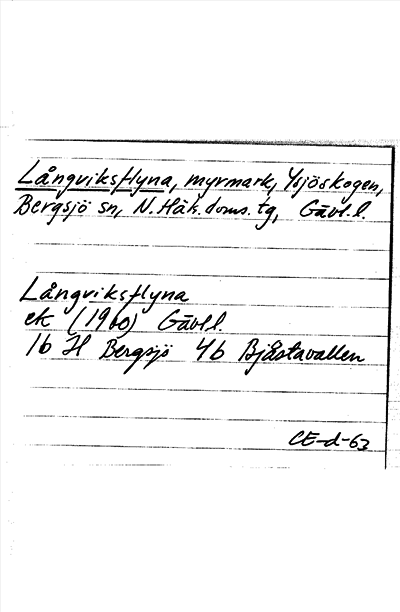 Långviksflyna, myrmark, Ysjöskogen,
Bergsjö sn, N. Häls. doms. tg, Gävl. l.
Långviksflyna
ek (1960) Gävl l.
16 H Bergsjö 4b Bjåstavallen
CE-d-63